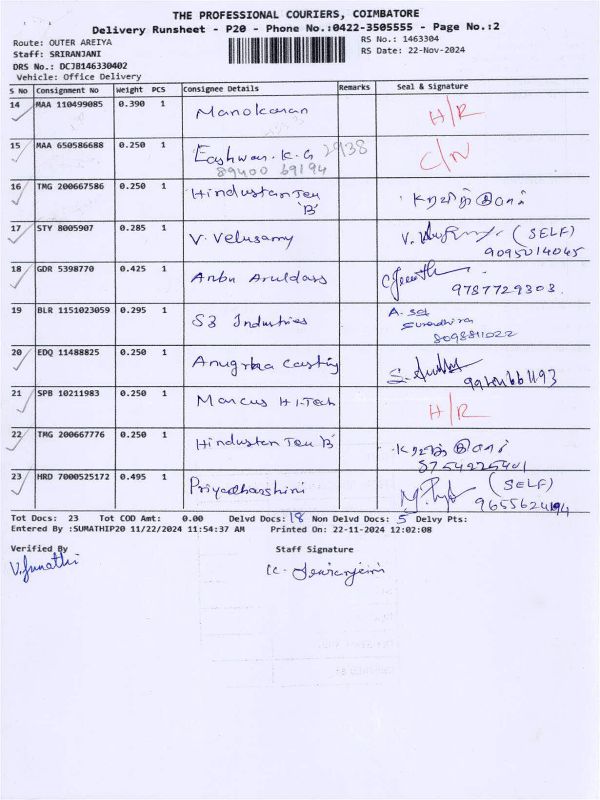 THE PROFESSIONAL COURIERS, COIMBATORE
Delivery Runsheet - P20 - Phone No.:0422-3505555 - Page No.:2
Route: OUTER AREIYA RS No.: 1463304
Staff: SRIRANJANI RS Date: 22-Nov-2024
DRS No.: DCJB146330402
Vehicle: Office Delivery
S No Consignment No Weight PCS Consignee Details Remarks Seal & Signature
14 MAA 110499085 0.390 1 Manokaran H/R
15 MAA 650586688 0.250 1 Eashwar. K. G 2938 C/N
89400 69194
16 TMG 200667586 0.250 1 Hindustan Tea
'B'
17 STY 8005907 0.285 1 V. Velusamy (SELF)
9095014045
18 GDR 5398770 0.425 1 Anbu Aruldass
9787729303
19 BLR 1151023059 0.295 1 S3 Industries
8098811022
20 EDQ 11488825 0.250 1 Anugraa Casting
21 SPB 10211983 0.250 1 Marcus Hi-Tech H/R
22 TMG 200667776 0.250 1 Hindustan Tea 'B'
8754225401
23 HRD 7000525172 0.495 1 Priyadharshini (SELF)
9655624194
Tot Docs: 23 Tot COD Amt: 0.00 Delvd Docs: 18 Non Delvd Docs: 5 Delvy Pts:
Entered By :SUMATHIP20 11/22/2024 11:54:37 AM Printed On: 22-11-2024 12:02:08
Verified By Staff Signature